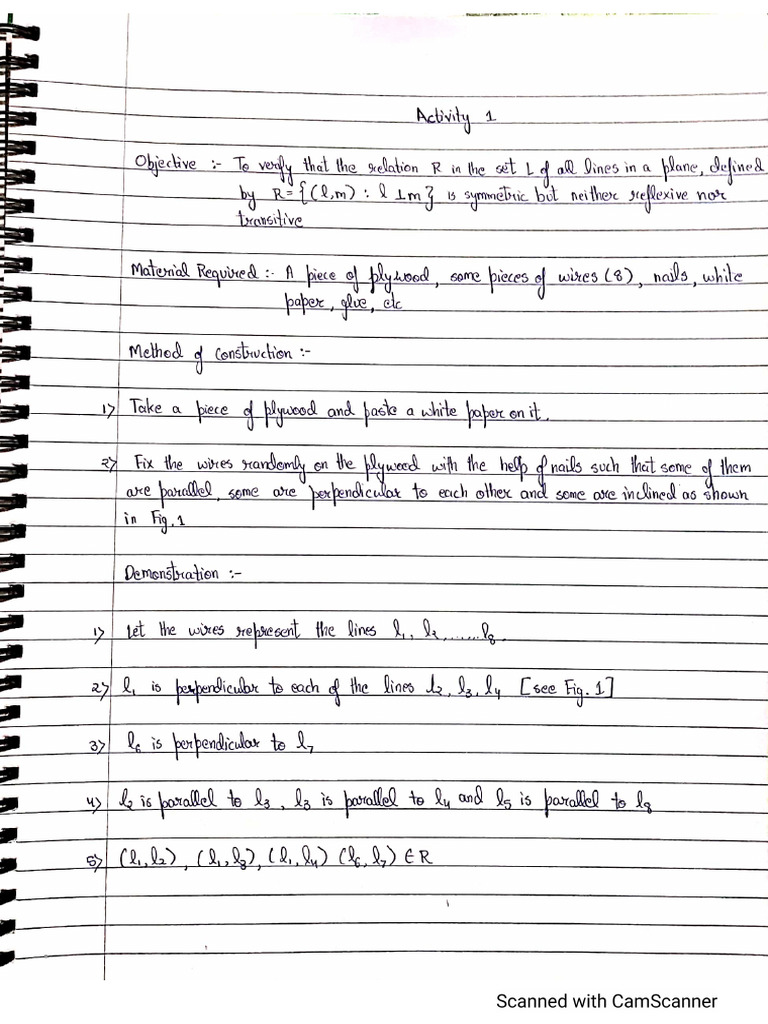 Activity 1
Objective :- To verify that the relation R in the set L of all lines in a plane, defined
by R = {(l,m) : l ⊥ m} is symmetric but neither reflexive nor
transitive
Material Required :- A piece of plywood, some pieces of wires (8), nails, white
paper, glue, etc
Method of construction :-
1) Take a piece of plywood and paste a white paper on it.
2) Fix the wires randomly on the plywood with the help of nails such that some of them
are parallel, some are perpendicular to each other and some are inclined as shown
in Fig. 1
Demonstration :-
1) Let the wires represent the lines l₁, l₂ ....... l₈
2) l₁ is perpendicular to each of the lines l₂, l₃, l₄ [see Fig. 1]
3) l₆ is perpendicular to l₇
4) l₂ is parallel to l₃, l₃ is parallel to l₄ and l₅ is parallel to l₈
5) (l₁, l₂), (l₁, l₃), (l₁, l₄) (l₆, l₇) ∈ R
Scanned with CamScanner